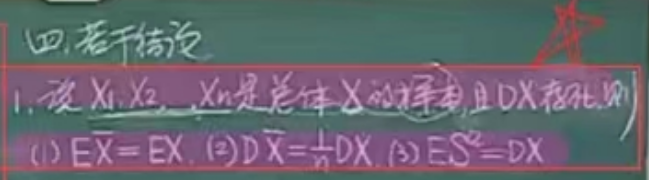 四、若干结论
1. 设 X₁, X₂, …, Xₙ是总体 X 的样本,且DX存在,则
(1) EX̅=EX. (2) DX̅=\frac{1}{n}DX. (3) ES²=DX